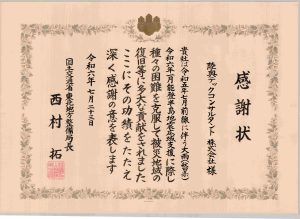 感謝状
陸奥テックコンサルタント株式会社 様
貴社は令和五年七月前線に伴う大雨(秋田)
令和六年一月能登半島地震応援に際し
種々の困難を克服して被災地域の
復旧等に多大な貢献をされました
ここにその功績をたたえ
深く感謝の意を表します
令和六年七月二十三日
国土交通省東北地方整備局長
西村 拓